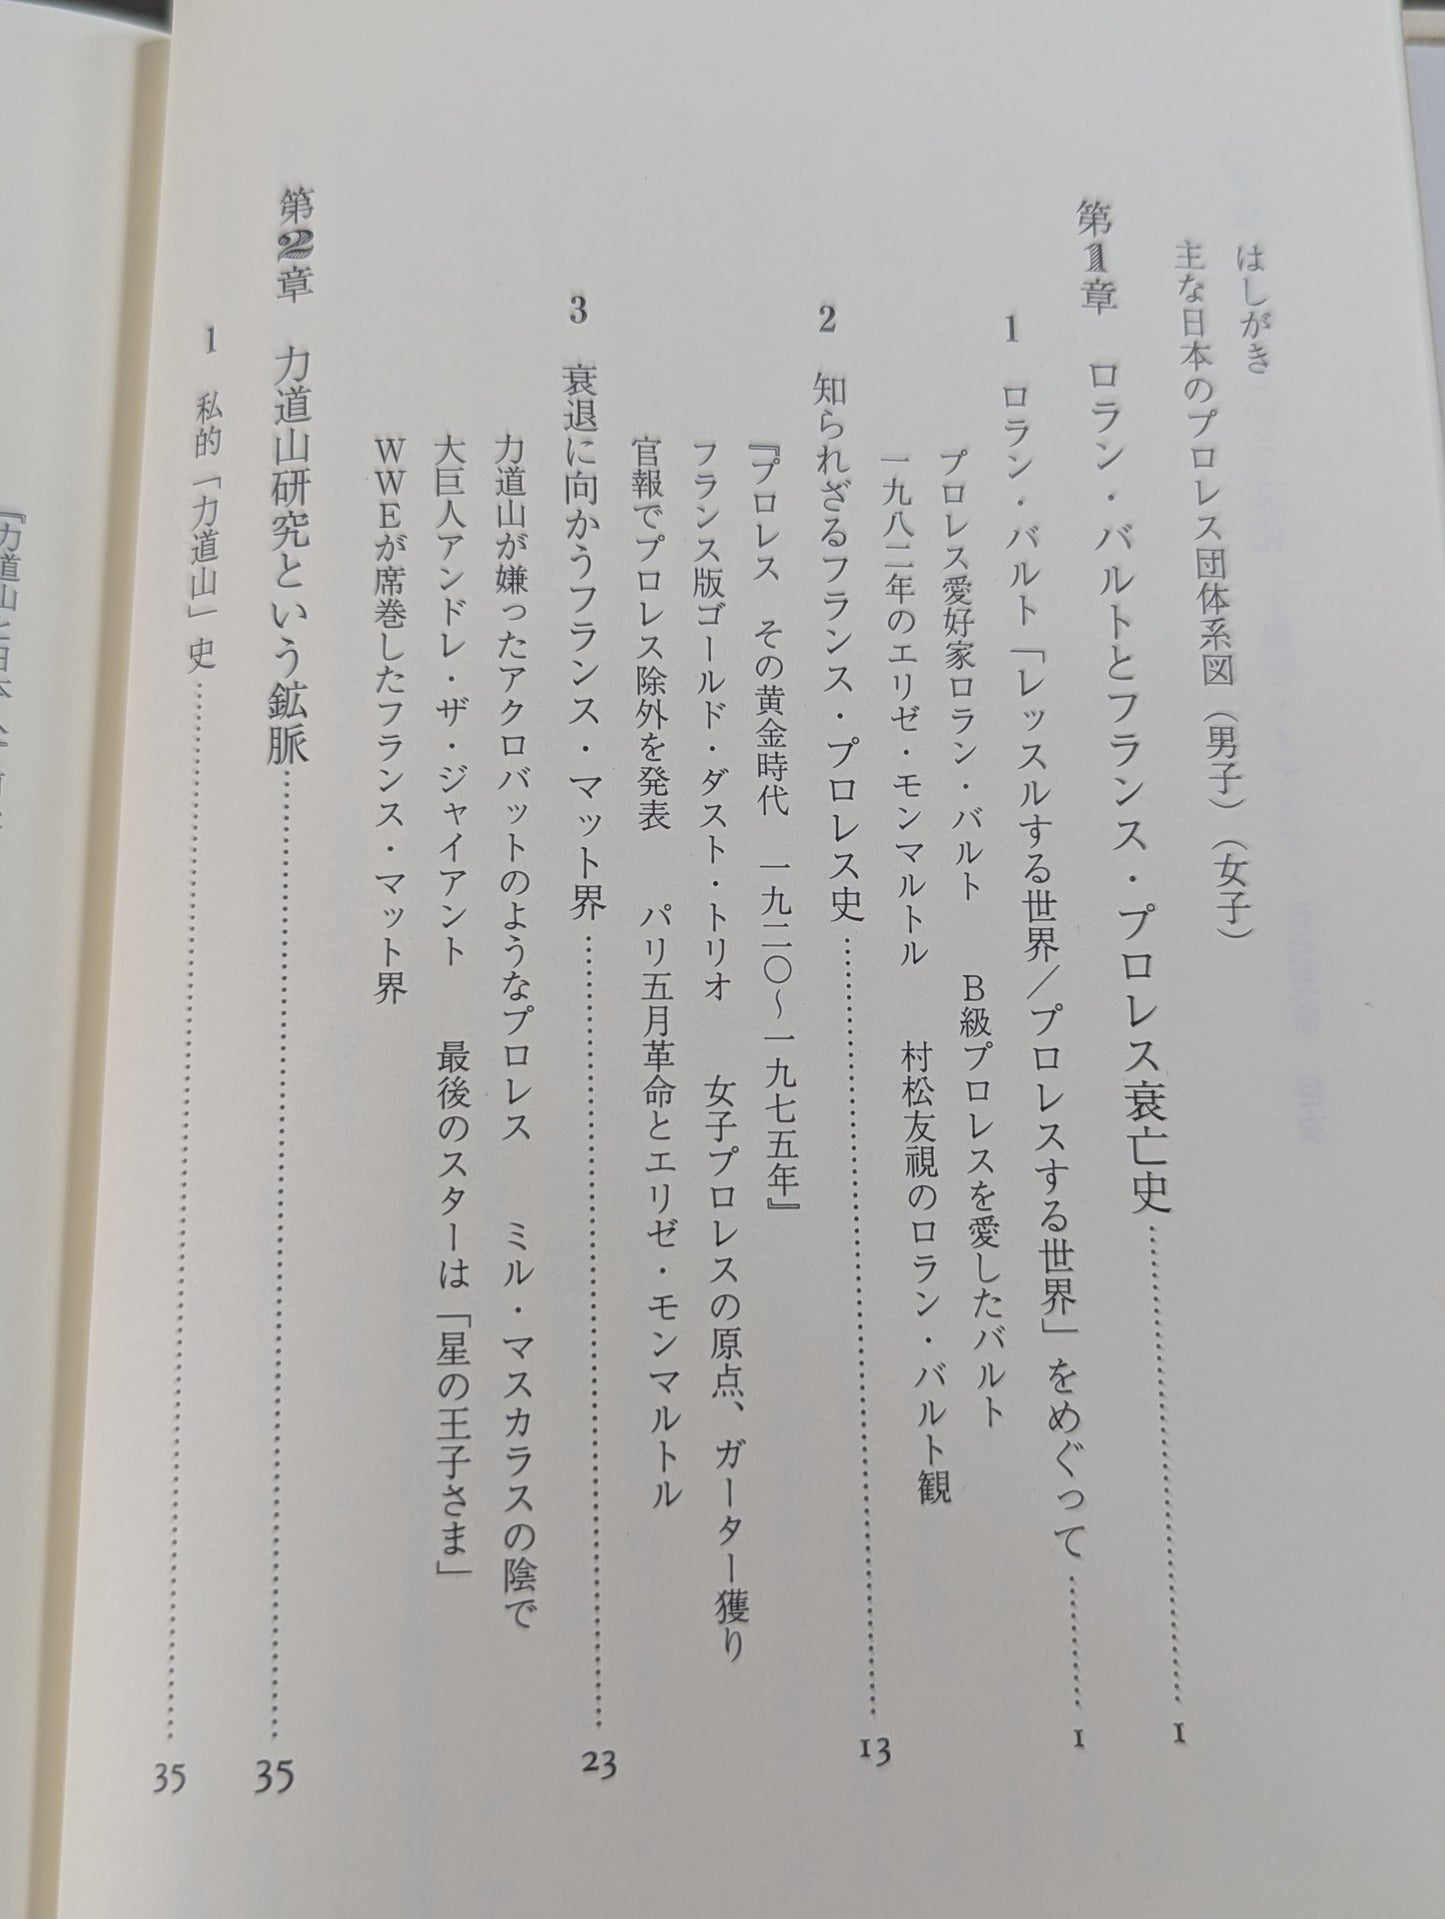 はしがき
主な日本のプロレス団体系図（男子）（女子）
第1章　ロラン・バルトとフランス・プロレス衰亡史……1
1　ロラン・バルト「レッスルする世界／プロレスする世界」をめぐって……1
プロレス愛好家ロラン・バルト　B級プロレスを愛したバルト
一九八二年のエリゼ・モンマルトル　村松友視のロラン・バルト観
2　知られざるフランス・プロレス史……13
『プロレス　その黄金時代　一九二〇～一九七五年』
フランス版ゴールド・ダスト・トリオ　女子プロレスの原点、ガーター獲り
官報でプロレス除外を発表　パリ五月革命とエリゼ・モンマルトル
3　衰退に向かうフランス・マット界……23
力道山が嫌ったアクロバットのようなプロレス　ミル・マスカラスの陰で
大巨人アンドレ・ザ・ジャイアント　最後のスターは「星の王子さま」
WWEが席巻したフランス・マット界
第2章　力道山研究という鉱脈……35
1　私的「力道山」史……35